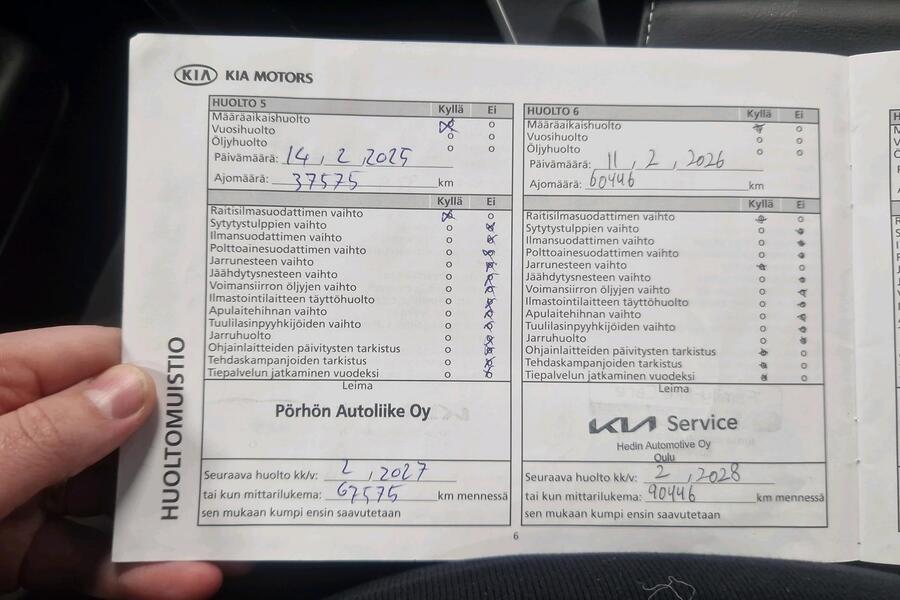 KIA KIA MOTORS
HUOLTOMUISTIO
HUOLTO 5 Kyllä Ei
Määräaikaishuolto
Vuosihuolto
Öljyhuolto
Päivämäärä: 14, 2, 2025
Ajomäärä: 37575 km
Kyllä Ei
Raitisilmasuodattimen vaihto
Sytytystulppien vaihto
Ilmansuodattimen vaihto
Polttoainesuodattimen vaihto
Jarrunesteen vaihto
Jäähdytysnesteen vaihto
Voimansiirron öljyjen vaihto
Ilmastointilaitteen täyttöhuolto
Apulaitehihnan vaihto
Tuulilasinpyyhkijöiden vaihto
Jarruhuolto
Ohjainlaitteiden päivitysten tarkistus
Tehdaskampanjoiden tarkistus
Tiepalvelun jatkaminen vuodeksi
Leima
Pörhön Autoliike Oy
Seuraava huolto kk/v: 2, 2027
tai kun mittarilukema: 67575 km mennessä
sen mukaan kumpi ensin saavutetaan
HUOLTO 6 Kyllä Ei
Määräaikaishuolto
Vuosihuolto
Öljyhuolto
Päivämäärä: 11, 2, 2026
Ajomäärä: 60446 km
Kyllä Ei
Raitisilmasuodattimen vaihto
Sytytystulppien vaihto
Ilmansuodattimen vaihto
Polttoainesuodattimen vaihto
Jarrunesteen vaihto
Jäähdytysnesteen vaihto
Voimansiirron öljyjen vaihto
Ilmastointilaitteen täyttöhuolto
Apulaitehihnan vaihto
Tuulilasinpyyhkijöiden vaihto
Jarruhuolto
Ohjainlaitteiden päivitysten tarkistus
Tehdaskampanjoiden tarkistus
Tiepalvelun jatkaminen vuodeksi
Leima
KIA Service
Hedin Automotive Oy
Oulu
Seuraava huolto kk/v: 2, 2028
tai kun mittarilukema: 90446 km mennessä
sen mukaan kumpi ensin saavutetaan
6